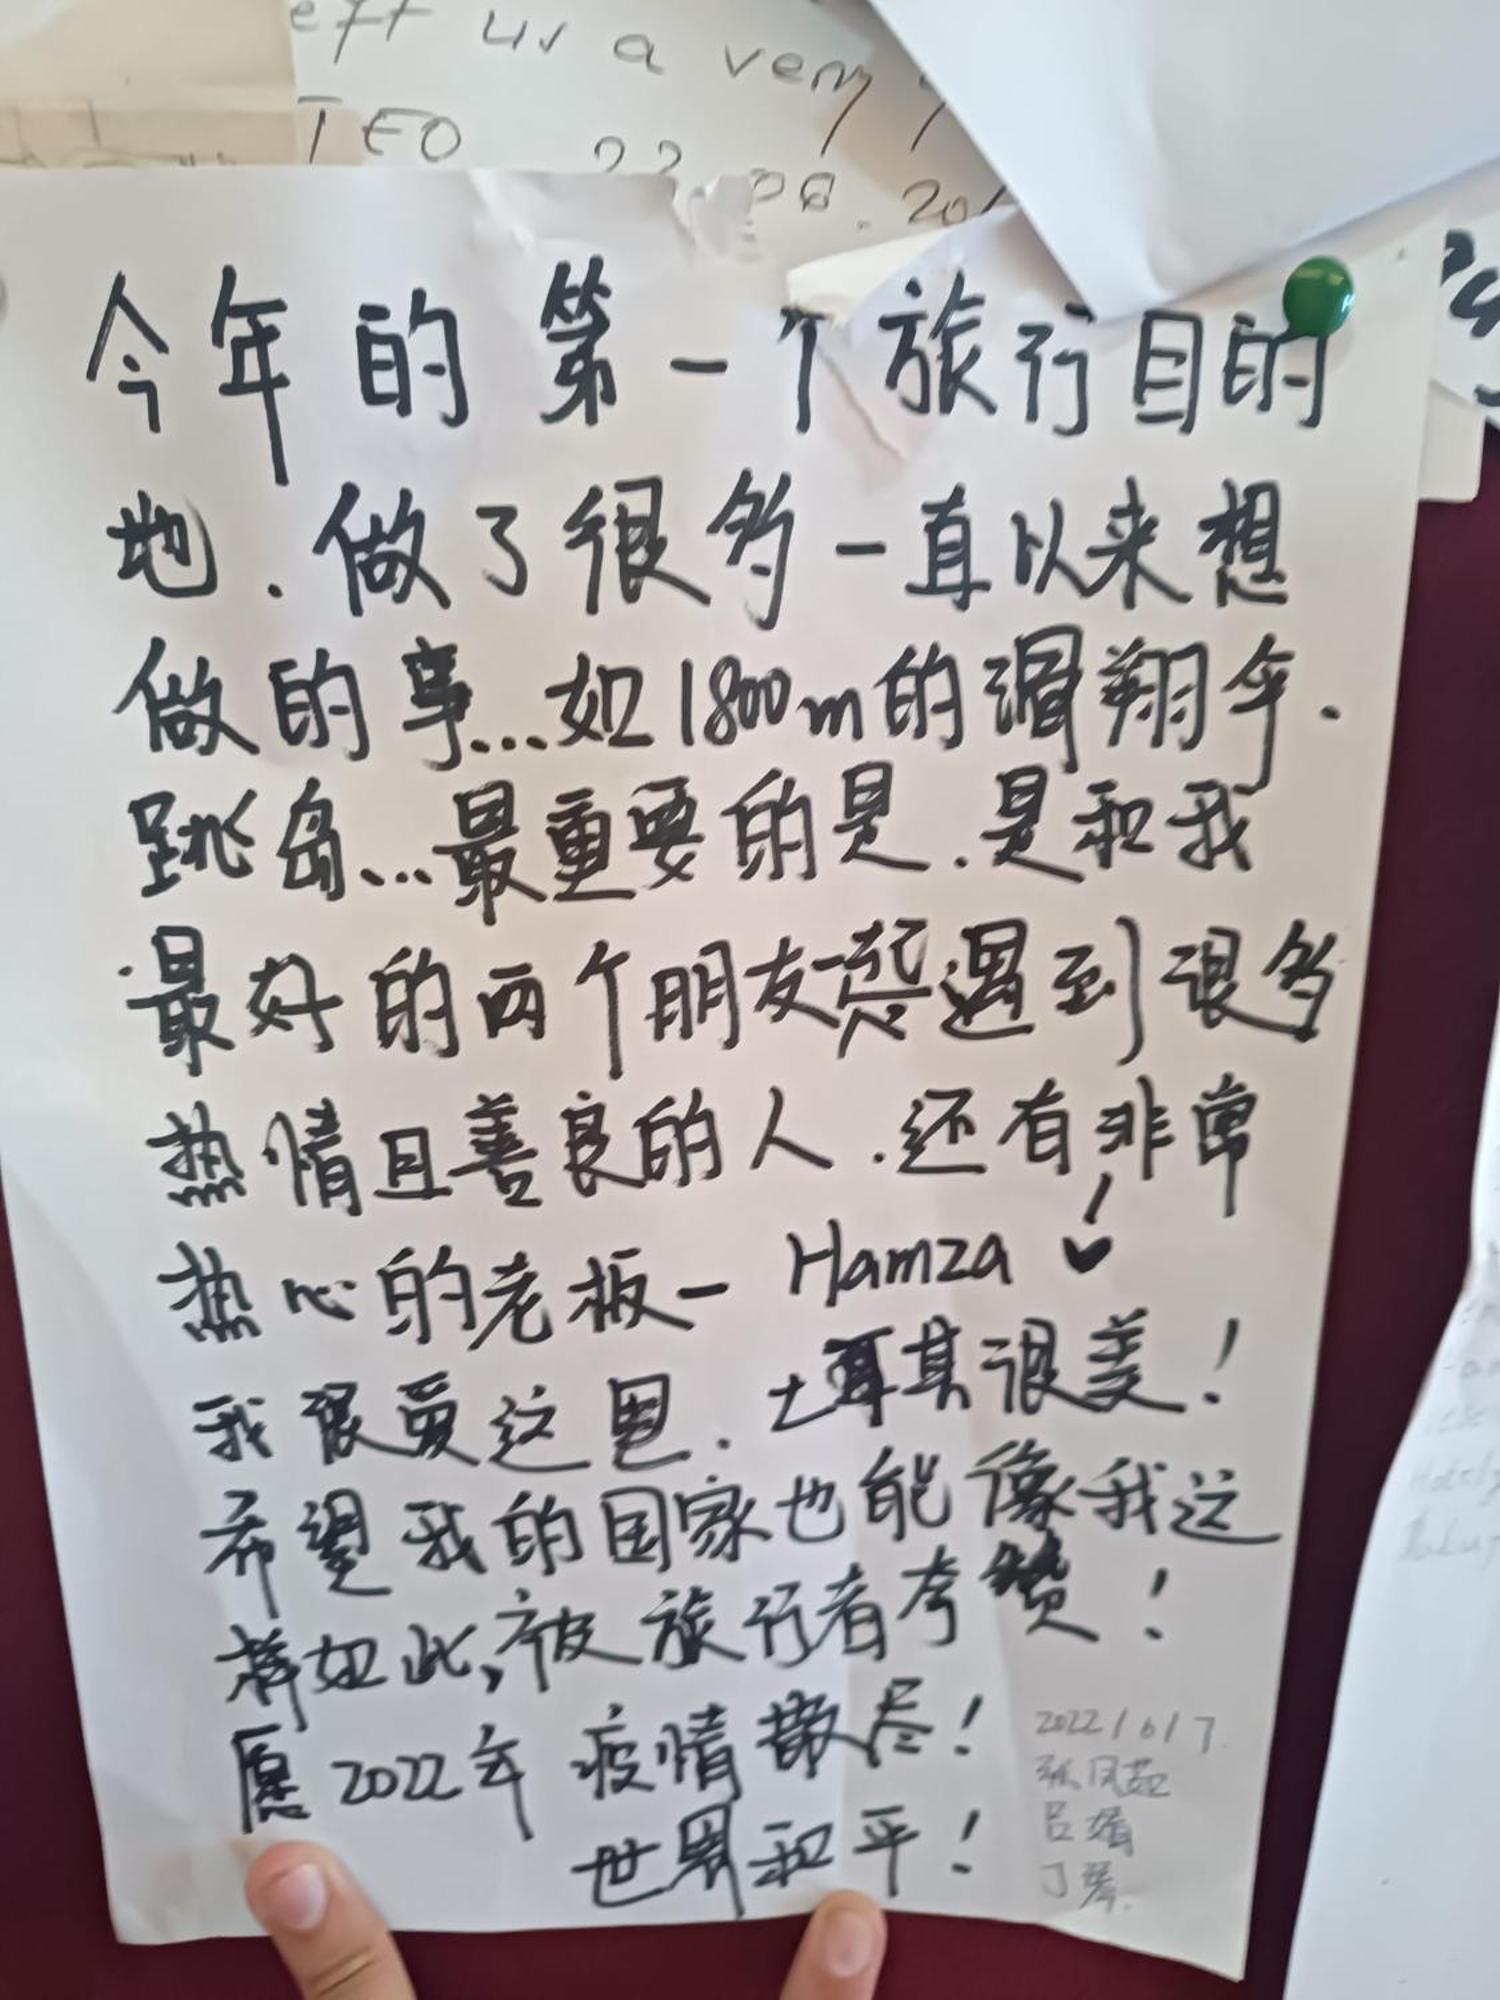 eft us a very
TEO 22.08.201
今年的第一个旅行目的
地.做了很多一直以来想
做的事...如1800m的滑翔伞.
跳岛...最重要的是.是和我
最好的两个朋友一起遇到很多
热情且善良的人.还有非常
热心的老板- Hamza
我很爱这里.土耳其很美!
希望我的国家也能像我这
样如此,被旅行者夸赞!
愿2022年 疫情散尽!
世界和平!
2022/6/7.
张凤茹
吕婧
丁琴.